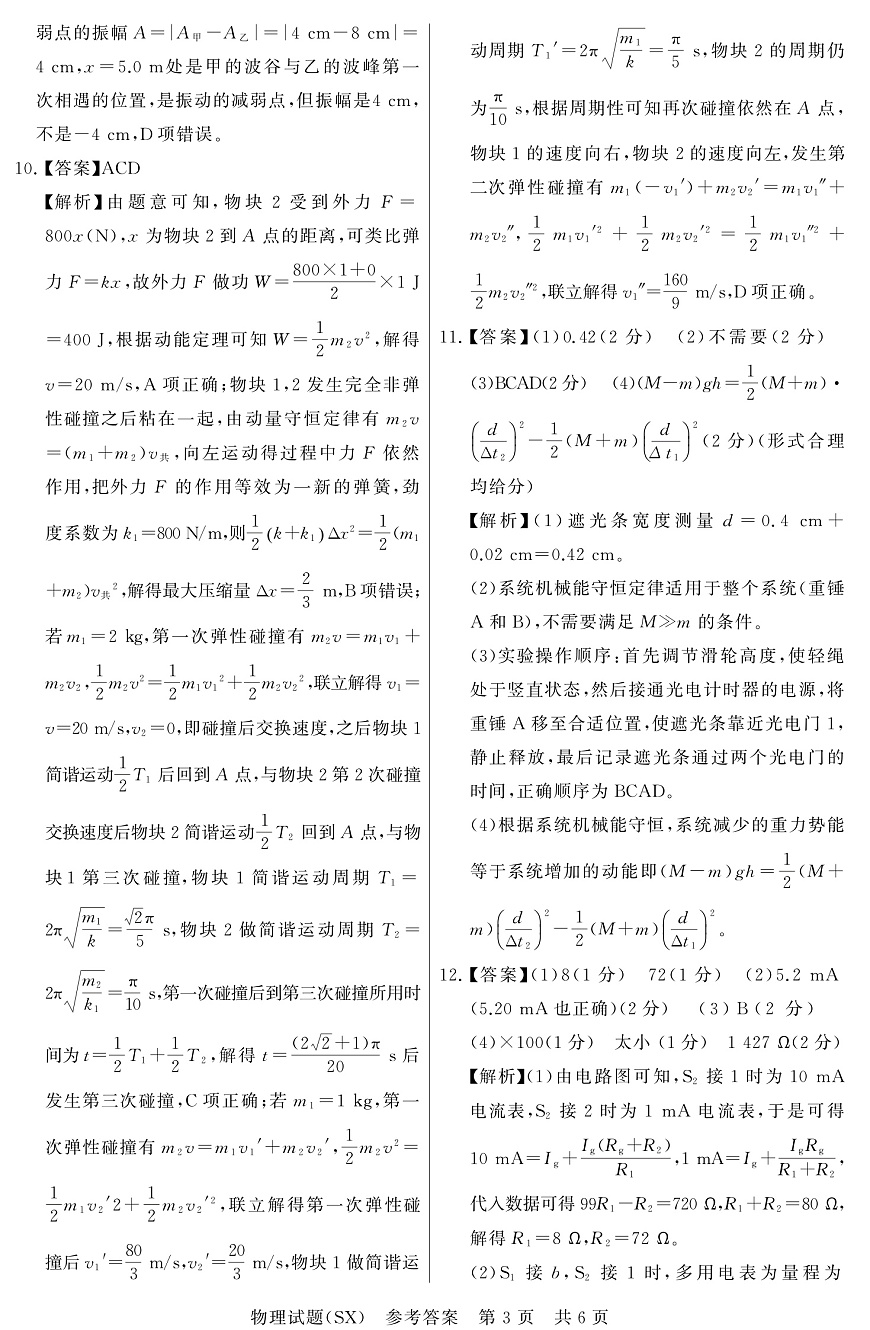 弱点的振幅 A=|A甲-A乙|=|4 cm-8 cm|=
4 cm,x=5.0 m处是甲的波谷与乙的波峰第一
次相遇的位置,是振动的减弱点,但振幅是4 cm,
不是-4 cm,D项错误。
10.【答案】ACD
【解析】由题意可知,物块 2 受到外力 F=
800x(N),x 为物块2到 A 点的距离,可类比弹
力 F=kx,故外力 F 做功 W=\frac{800×1+0}{2}×1 J
=400 J,根据动能定理可知 W=\frac{1}{2}m₂v²,解得
v=20 m/s,A 项正确;物块1,2 发生完全非弹
性碰撞之后粘在一起,由动量守恒定律有 m₂v
=(m₁+m₂)v共,向左运动得过程中力 F 依然
作用,把外力 F 的作用等效为一新的弹簧,劲
度系数为 k₁=800 N/m,则\frac{1}{2}(k+k₁)Δx²=\frac{1}{2}(m₁
+m₂)v共²,解得最大压缩量 Δx=\frac{2}{3} m,B项错误;
若 m₁=2 kg,第一次弹性碰撞有 m₂v=m₁v₁+
m₂v₂,\frac{1}{2}m₂v²=\frac{1}{2}m₁v₁²+\frac{1}{2}m₂v₂²,联立解得 v₁=
v=20 m/s,v₂=0,即碰撞后交换速度,之后物块 1
简谐运动\frac{1}{2}T₁ 后回到 A 点,与物块 2 第 2 次碰撞
交换速度后物块 2 简谐运动\frac{1}{2}T₂ 回到 A 点,与物
块 1 第三次碰撞,物块 1 简谐运动周期 T₁=
2π\sqrt{\frac{m₁}{k}}=\frac{\sqrt{2}π}{5} s,物块 2 做简谐运动周期 T₂=
2π\sqrt{\frac{m₂}{k₁}}=\frac{π}{10} s,第一次碰撞后到第三次碰撞所用时
间为 t=\frac{1}{2}T₁+\frac{1}{2}T₂,解得 t=\frac{(2\sqrt{2}+1)π}{20} s 后
发生第三次碰撞,C 项正确;若 m₁=1 kg,第一
次弹性碰撞有 m₂v=m₁v₁′+m₂v₂′,\frac{1}{2}m₂v²=
\frac{1}{2}m₁v₂′2+\frac{1}{2}m₂v₂′²,联立解得第一次弹性碰
撞后 v₁′=\frac{80}{3} m/s,v₂′=\frac{20}{3} m/s,物块 1 做简谐运
动周期 T₁′=2π\sqrt{\frac{m₁}{k}}=\frac{π}{5} s,物块 2 的周期仍
为\frac{π}{10} s,根据周期性可知再次碰撞依然在 A 点,
物块 1 的速度向右,物块 2 的速度向左,发生第
二次弹性碰撞有 m₁(-v₁′)+m₂v₂′=m₁v₁″+
m₂v₂″,\frac{1}{2}m₁v₁′²+\frac{1}{2}m₂v₂′²=\frac{1}{2}m₁v₁″²+
\frac{1}{2}m₂v₂″²,联立解得 v₁″=\frac{160}{9} m/s,D 项正确。
11.【答案】(1)0.42(2 分) (2)不需要(2 分)
(3)BCAD(2分) (4)(M-m)gh=\frac{1}{2}(M+m)·
(\frac{d}{Δt₂})²-\frac{1}{2}(M+m)(\frac{d}{Δt₁})²(2 分)(形式合理
均给分)
【解析】(1)遮光条宽度测量 d=0.4 cm+
0.02 cm=0.42 cm。
(2)系统机械能守恒定律适用于整个系统(重锤
A 和 B),不需要满足 M≫m 的条件。
(3)实验操作顺序:首先调节滑轮高度,使轻绳
处于竖直状态,然后接通光电计时器的电源,将
重锤 A 移至合适位置,使遮光条靠近光电门 1,
静止释放,最后记录遮光条通过两个光电门的
时间,正确顺序为 BCAD。
(4)根据系统机械能守恒,系统减少的重力势能
等于系统增加的动能即(M-m)gh=\frac{1}{2}(M+
m)(\frac{d}{Δt₂})²-\frac{1}{2}(M+m)(\frac{d}{Δt₁})²。
12.【答案】(1)8(1 分) 72(1 分) (2)5.2 mA
(5.20 mA 也正确)(2 分) (3)B(2 分)
(4)×100(1分) 太小(1分) 1 427 Ω(2 分)
【解析】(1)由电路图可知,S₂ 接 1 时为 10 mA
电流表,S₂ 接 2 时为 1 mA 电流表,于是可得
10 mA=I_g+\frac{I_g(R_g+R₂)}{R₁},1 mA=I_g+\frac{I_gR_g}{R₁+R₂},
代入数据可得 99R₁-R₂=720 Ω,R₁+R₂=80 Ω,
解得 R₁=8 Ω,R₂=72 Ω。
(2)S₁ 接 b,S₂ 接 1 时,多用电表为量程为
物理试题(SX) 参考答案 第 3 页 共 6 页